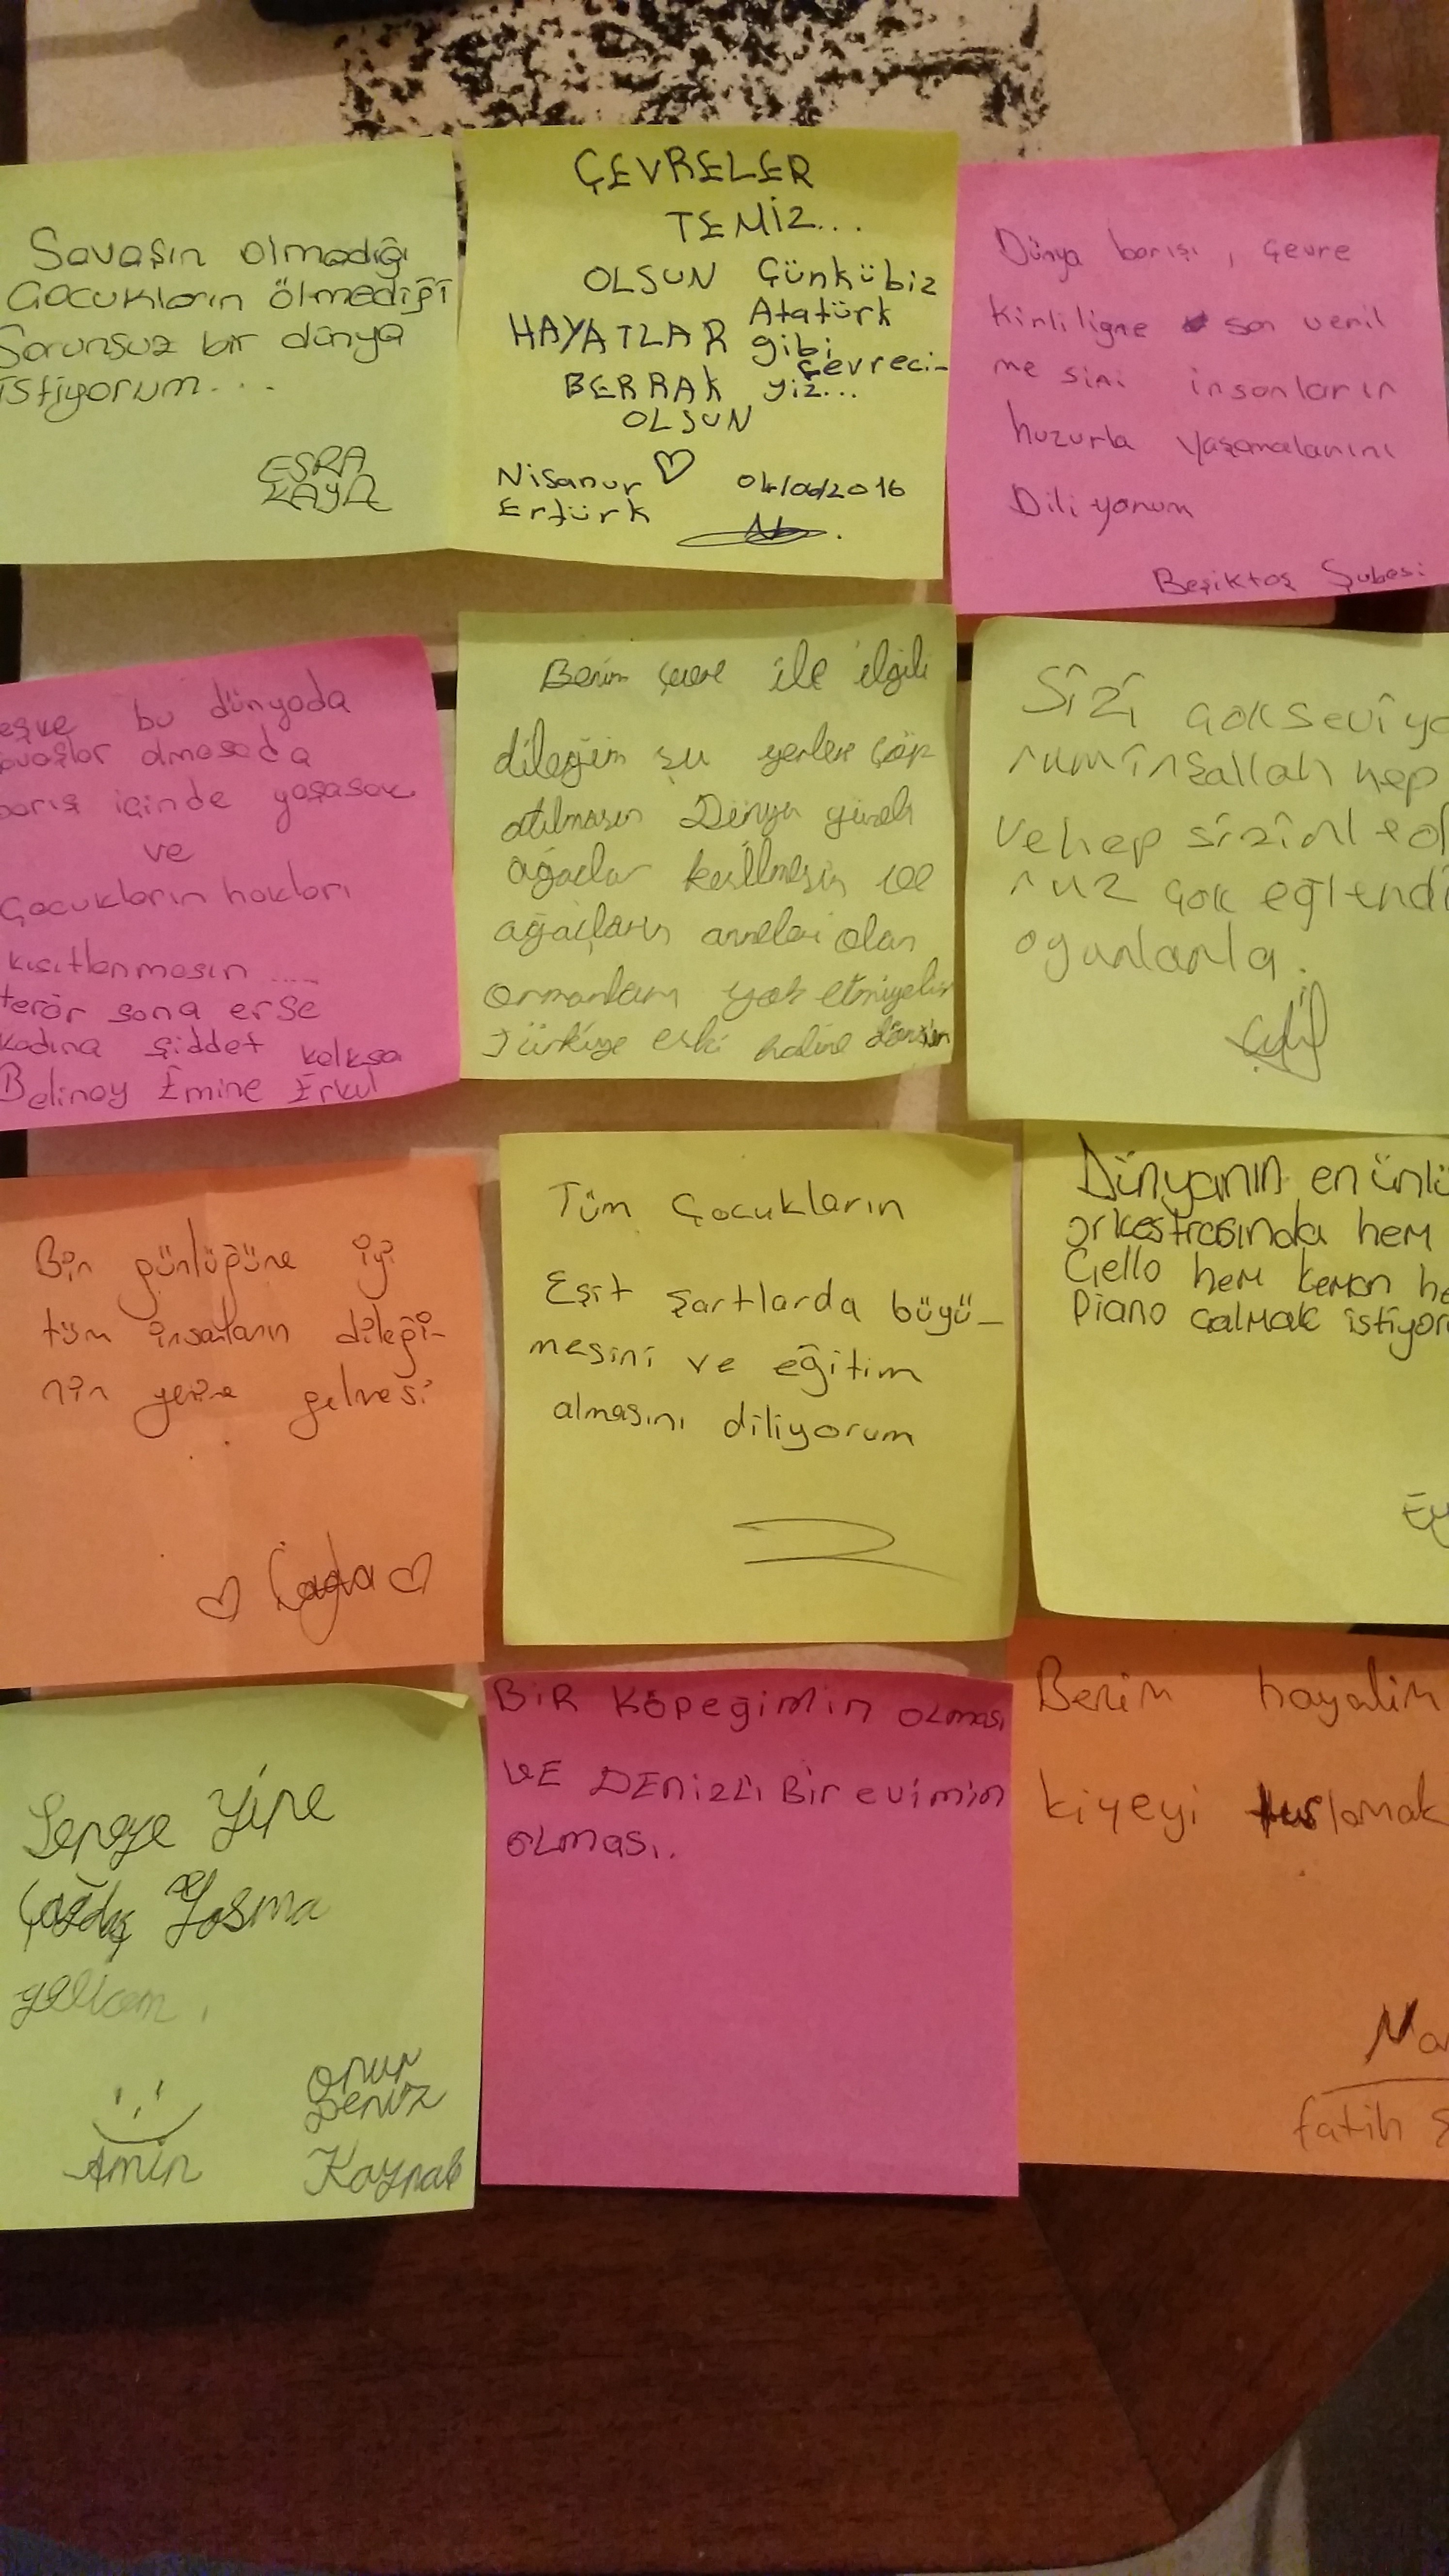 Savaşın olmadığı
Çocukların ölmediği
Sorunsuz bir dünya
istiyorum....
ESRA
KAYA
ÇEVRELER
TEMİZ...
OLSUN Çünkü biz
HAYATLAR Atatürk
gibi
BERRAK çevreci-
yiz...
OLSUN
Nisanur ♡ 04/06/2016
Ertürk
Dünya barışı, çevre
kirliligne son veril
mesini insanların
huzurla yaşamalarını
Diliyorum
Beşiktaş Şubesi
eşke bu dünyada
avaşlar olmasada
barış içinde yaşasak
ve
Çocukların hakları
kısıtlanmasın ....
terör sona erse
kadına şiddet kalksa
Belinay Emine Erkul
Benim çevre ile ilgili
dileğim şu yerlere çöp
atılmasın Dünya güzel
ağaçlar kesilmesin ve
ağaçların anneleri olan
ormanları yok etmiyelim
Türkiye eski haline dönsün
Sizi çokseviyo
ruminşallah hep
vehep sizinle ol
ruz çok eğlendi
oyunlarla.
Elif
Bin günlüğüne iyi
tüm insanların dileği-
nin yerine gelmesi
♡ Çağla ♡
Tüm Çocukların
Eşit Şartlarda büyü-
mesini ve eğitim
almasını diliyorum
Dünyanın en ünlü
orkestrasında hem
Cello hem keman he
Piano çalmak istiyor
Ey
Seneye Yine
Çağdaş Yaşma
gelicem.
Amin
Onur
Deniz
Kaynak
BİR Köpeğimin olması
VE DENİZLİ Bir evimin
OLması.
Benim hayalim
kiyeyi turlamak
Ma
fatih S